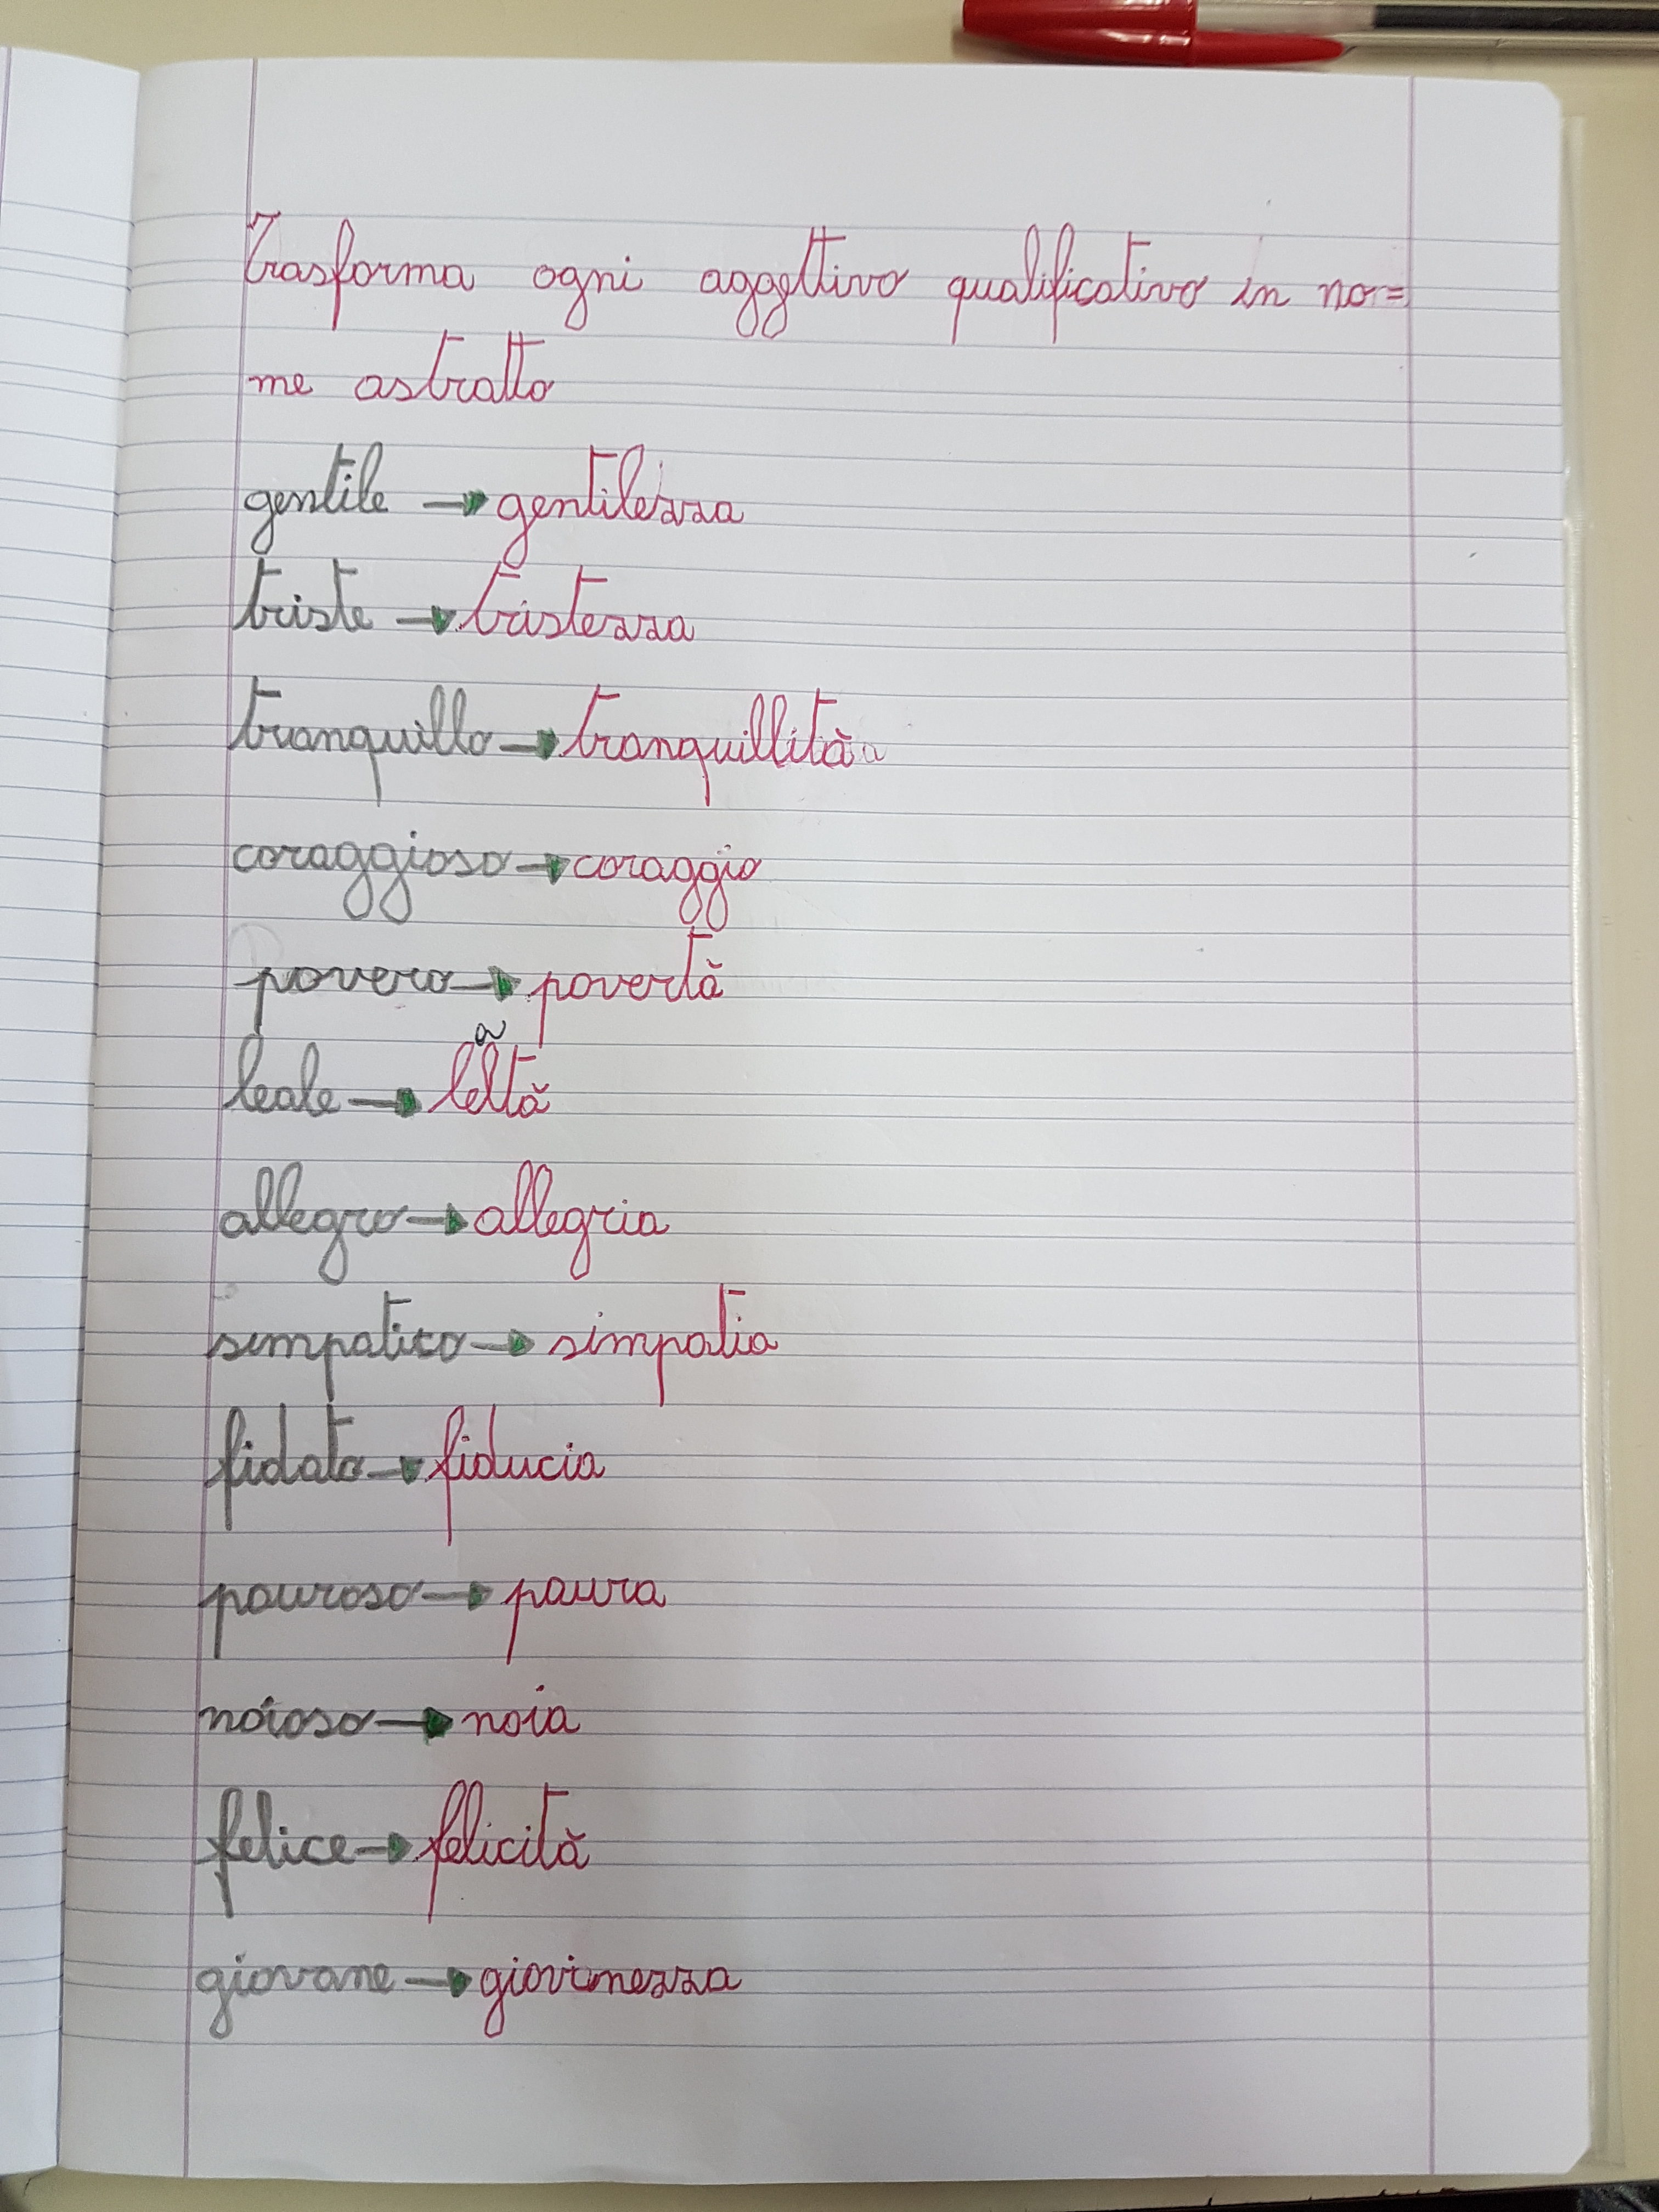 Trasforma ogni aggettivo qualificativo in no=
me astratto
gentile → gentilezza
triste → tristezza
tranquillo → tranquillità
coraggioso → coraggio
povero → povertà
leale → lealtà
allegro → allegria
simpatico → simpatia
fidato → fiducia
pauroso → paura
noioso → noia
felice → felicità
giovane → giovinezza